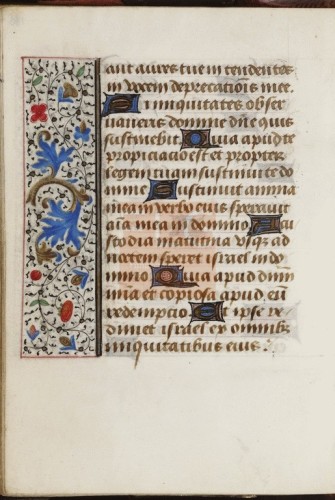 ant aures tue intendentes
in vocem deprecatiōis mee.
Si iniquitates obser
uaueris domine dn̄e quis
sustinebit Quia apud te
propiciacio est et propter
legem tuam sustinui te do
mine Sustinuit anima
mea in verbo eius sperauit
aīa mea in domino A cus
todia matutina vsq; ad
noctem speret israel in do
mino Quia apud dnm
mīa et copiosa apud eū
redemptio Et ipse re
dimet israel ex omnib;
iniquitatibus eius.